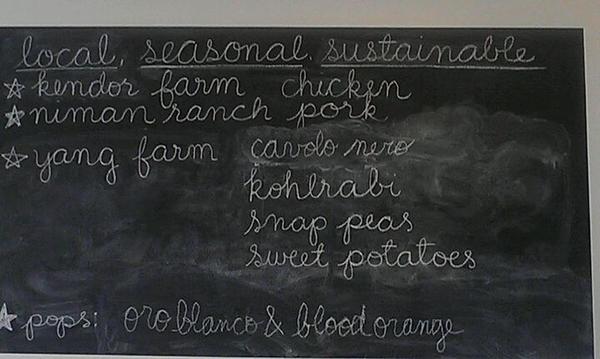 local, seasonal, sustainable
kendor farm chicken
niman ranch pork
yang farm cavolo nero
kohlrabi
snap peas
sweet potatoes
pops: oro blanco & blood orange